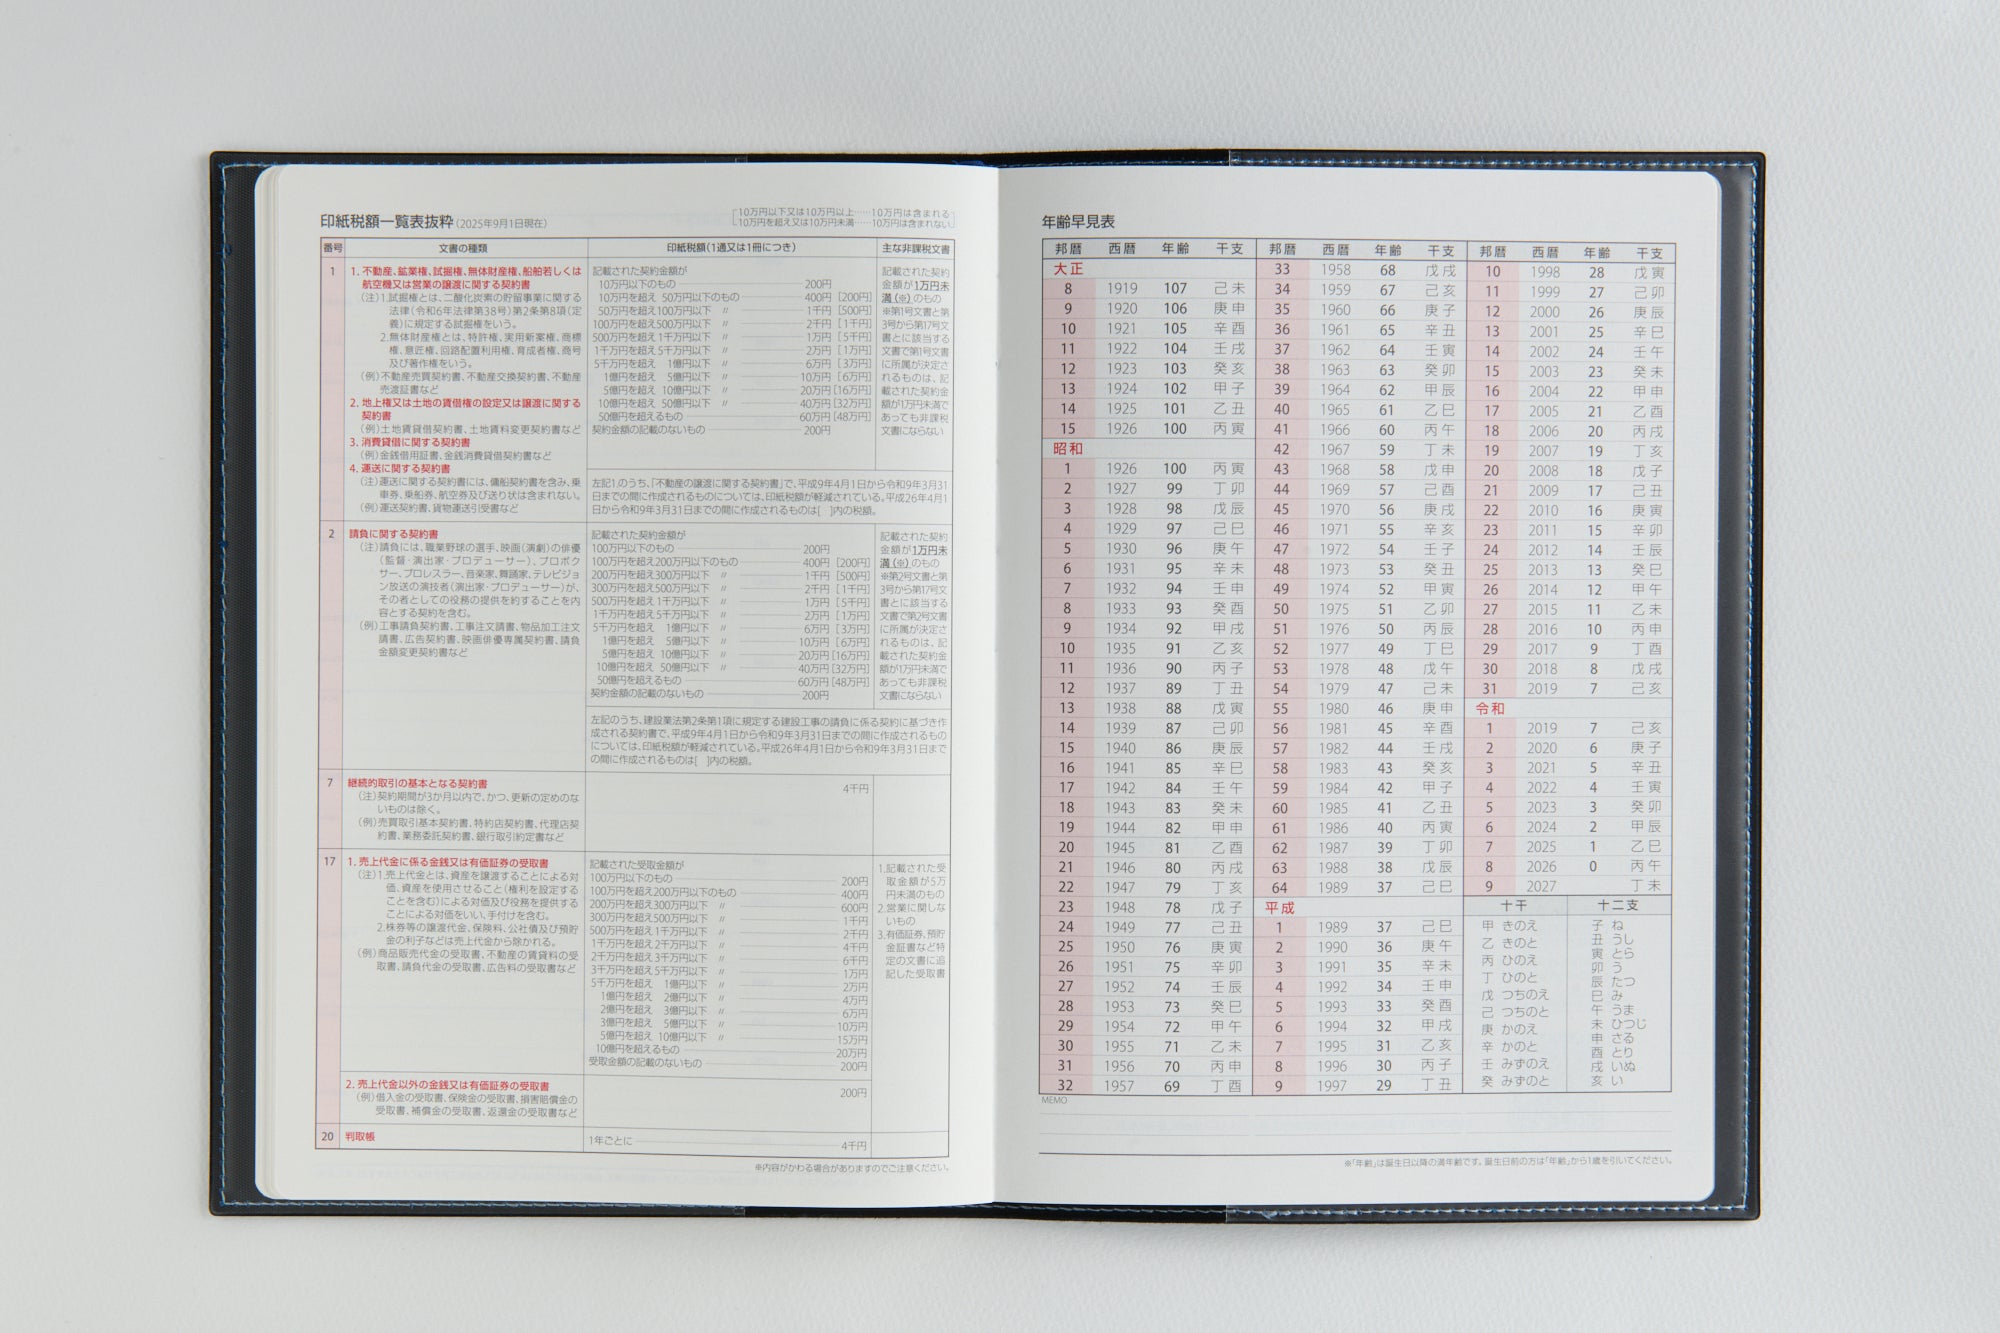 印紙税額一覧表抜粋(2025年9月1日現在)
[10万円以下又は10万円以上……10万円は含まれる
10万円を超え又は10万円未満……10万円は含まれない]
番号 文書の種類 印紙税額(1通又は1冊につき) 主な非課税文書
1
1. 不動産、鉱業権、試掘権、無体財産権、船舶若しくは
航空機又は営業の譲渡に関する契約書
(注)1.試掘権とは、二酸化炭素の貯留事業に関する
法律(令和6年法律第38号)第2条第8項(定
義)に規定する試掘権をいう。
2.無体財産権とは、特許権、実用新案権、商標
権、意匠権、回路配置利用権、育成者権、商号
及び著作権をいう。
(例)不動産売買契約書、不動産交換契約書、不動産
売渡証書など
2. 地上権又は土地の賃借権の設定又は譲渡に関する
契約書
(例)土地賃貸借契約書、土地賃料変更契約書など
3. 消費貸借に関する契約書
(例)金銭借用証書、金銭消費貸借契約書など
4. 運送に関する契約書
(注)運送に関する契約書には、傭船契約書を含み、乗
車券、乗船券、航空券及び送り状は含まれない。
(例)運送契約書、貨物運送引受書など
記載された契約金額が
10万円以下のもの 200円
10万円を超え 50万円以下のもの 400円 [200円]
50万円を超え100万円以下 〃 1千円 [500円]
100万円を超え500万円以下 〃 2千円 [1千円]
500万円を超え1千万円以下 〃 1万円 [5千円]
1千万円を超え5千万円以下 〃 2万円 [1万円]
5千万円を超え 1億円以下 〃 6万円 [3万円]
1億円を超え 5億円以下 〃 10万円 [6万円]
5億円を超え 10億円以下 〃 20万円 [16万円]
10億円を超え 50億円以下 〃 40万円 [32万円]
50億円を超えるもの 60万円 [48万円]
契約金額の記載のないもの 200円
左記1.のうち、「不動産の譲渡に関する契約書」で、平成9年4月1日から令和9年3月31
日までの間に作成されるものについては、印紙税額が軽減されている。平成26年4月1
日から令和9年3月31日までの間に作成されるものは[ ]内の税額。
記載された契約
金額が1万円未
満(※)のもの
※第1号文書と第
3号から第17号文
書とに該当する
文書で第1号文書
に所属が決定さ
れるものは、記
載された契約金
額が1万円未満で
あっても非課税
文書にならない
2
請負に関する契約書
(注)請負には、職業野球の選手、映画(演劇)の俳優
(監督・演出家・プロデューサー)、プロボク
サー、プロレスラー、音楽家、舞踊家、テレビジョ
ン放送の演技者(演出家・プロデューサー)が、
その者としての役務の提供を約することを内
容とする契約を含む。
(例)工事請負契約書、工事注文請書、物品加工注文
請書、広告契約書、映画俳優専属契約書、請負
金額変更契約書など
記載された契約金額が
100万円以下のもの 200円
100万円を超え200万円以下のもの 400円 [200円]
200万円を超え300万円以下 〃 1千円 [500円]
300万円を超え500万円以下 〃 2千円 [1千円]
500万円を超え1千万円以下 〃 1万円 [5千円]
1千万円を超え5千万円以下 〃 2万円 [1万円]
5千万円を超え 1億円以下 〃 6万円 [3万円]
1億円を超え 5億円以下 〃 10万円 [6万円]
5億円を超え 10億円以下 〃 20万円 [16万円]
10億円を超え 50億円以下 〃 40万円 [32万円]
50億円を超えるもの 60万円 [48万円]
契約金額の記載のないもの 200円
左記のうち、建設業法第2条第1項に規定する建設工事の請負に係る契約に基づき作
成される契約書で、平成9年4月1日から令和9年3月31日までの間に作成されるもの
については、印紙税額が軽減されている。平成26年4月1日から令和9年3月31日まで
の間に作成されるものは[ ]内の税額。
記載された契約
金額が1万円未
満(※)のもの
※第2号文書と第
3号から第17号文
書とに該当する
文書で第2号文書
に所属が決定さ
れるものは、記
載された契約金
額が1万円未満で
あっても非課税
文書にならない
7
継続的取引の基本となる契約書
(注)契約期間が3か月以内で、かつ、更新の定めのな
いものは除く。
(例)売買取引基本契約書、特約店契約書、代理店契
約書、業務委託契約書、銀行取引約定書など
4千円
17
1. 売上代金に係る金銭又は有価証券の受取書
(注)1.売上代金とは、資産を譲渡することによる対
価、資産を使用させること(権利を設定する
ことを含む)による対価及び役務を提供する
ことによる対価をいい、手付けを含む。
2.株券等の譲渡代金、保険料、公社債及び預貯
金の利子などは売上代金から除かれる。
(例)商品販売代金の受取書、不動産の賃貸料の受
取書、請負代金の受取書、広告料の受取書など
記載された受取金額が
100万円以下のもの 200円
100万円を超え200万円以下のもの 400円
200万円を超え300万円以下 〃 600円
300万円を超え500万円以下 〃 1千円
500万円を超え1千万円以下 〃 2千円
1千万円を超え2千万円以下 〃 4千円
2千万円を超え3千万円以下 〃 6千円
3千万円を超え5千万円以下 〃 1万円
5千万円を超え 1億円以下 〃 2万円
1億円を超え 2億円以下 〃 4万円
2億円を超え 3億円以下 〃 6万円
3億円を超え 5億円以下 〃 10万円
5億円を超え 10億円以下 〃 15万円
10億円を超えるもの 20万円
受取金額の記載のないもの 200円
1.記載された受
取金額が5万
円未満のもの
2.営業に関しな
いもの
3.有価証券、預貯
金証書など特
定の文書に追
記した受取書
2. 売上代金以外の金銭又は有価証券の受取書
(例)借入金の受取書、保険金の受取書、損害賠償金の
受取書、補償金の受取書、返還金の受取書など
200円
20 判取帳 1年ごとに 4千円
※内容がかわる場合がありますのでご注意ください。
年齢早見表
邦暦 西暦 年齢 干支
大正
8 1919 107 己未
9 1920 106 庚申
10 1921 105 辛酉
11 1922 104 壬戌
12 1923 103 癸亥
13 1924 102 甲子
14 1925 101 乙丑
15 1926 100 丙寅
昭和
1 1926 100 丙寅
2 1927 99 丁卯
3 1928 98 戊辰
4 1929 97 己巳
5 1930 96 庚午
6 1931 95 辛未
7 1932 94 壬申
8 1933 93 癸酉
9 1934 92 甲戌
10 1935 91 乙亥
11 1936 90 丙子
12 1937 89 丁丑
13 1938 88 戊寅
14 1939 87 己卯
15 1940 86 庚辰
16 1941 85 辛巳
17 1942 84 壬午
18 1943 83 癸未
19 1944 82 甲申
20 1945 81 乙酉
21 1946 80 丙戌
22 1947 79 丁亥
23 1948 78 戊子
24 1949 77 己丑
25 1950 76 庚寅
26 1951 75 辛卯
27 1952 74 壬辰
28 1953 73 癸巳
29 1954 72 甲午
30 1955 71 乙未
31 1956 70 丙申
32 1957 69 丁酉
邦暦 西暦 年齢 干支
33 1958 68 戊戌
34 1959 67 己亥
35 1960 66 庚子
36 1961 65 辛丑
37 1962 64 壬寅
38 1963 63 癸卯
39 1964 62 甲辰
40 1965 61 乙巳
41 1966 60 丙午
42 1967 59 丁未
43 1968 58 戊申
44 1969 57 己酉
45 1970 56 庚戌
46 1971 55 辛亥
47 1972 54 壬子
48 1973 53 癸丑
49 1974 52 甲寅
50 1975 51 乙卯
51 1976 50 丙辰
52 1977 49 丁巳
53 1978 48 戊午
54 1979 47 己未
55 1980 46 庚申
56 1981 45 辛酉
57 1982 44 壬戌
58 1983 43 癸亥
59 1984 42 甲子
60 1985 41 乙丑
61 1986 40 丙寅
62 1987 39 丁卯
63 1988 38 戊辰
64 1989 37 己巳
平成
1 1989 37 己巳
2 1990 36 庚午
3 1991 35 辛未
4 1992 34 壬申
5 1993 33 癸酉
6 1994 32 甲戌
7 1995 31 乙亥
8 1996 30 丙子
9 1997 29 丁丑
邦暦 西暦 年齢 干支
10 1998 28 戊寅
11 1999 27 己卯
12 2000 26 庚辰
13 2001 25 辛巳
14 2002 24 壬午
15 2003 23 癸未
16 2004 22 甲申
17 2005 21 乙酉
18 2006 20 丙戌
19 2007 19 丁亥
20 2008 18 戊子
21 2009 17 己丑
22 2010 16 庚寅
23 2011 15 辛卯
24 2012 14 壬辰
25 2013 13 癸巳
26 2014 12 甲午
27 2015 11 乙未
28 2016 10 丙申
29 2017 9 丁酉
30 2018 8 戊戌
31 2019 7 己亥
令和
1 2019 7 己亥
2 2020 6 庚子
3 2021 5 辛丑
4 2022 4 壬寅
5 2023 3 癸卯
6 2024 2 甲辰
7 2025 1 乙巳
8 2026 0 丙午
9 2027 丁未
十干
甲 きのえ
乙 きのと
丙 ひのえ
丁 ひのと
戊 つちのえ
己 つちのと
庚 かのえ
辛 かのと
壬 みずのえ
癸 みずのと
十二支
子 ね
丑 うし
寅 とら
卯 う
辰 たつ
巳 み
午 うま
未 ひつじ
申 さる
酉 とり
戌 いぬ
亥 い
MEMO
※「年齢」は誕生日以降の満年齢です。誕生日前の方は「年齢」から1歳を引いてください。